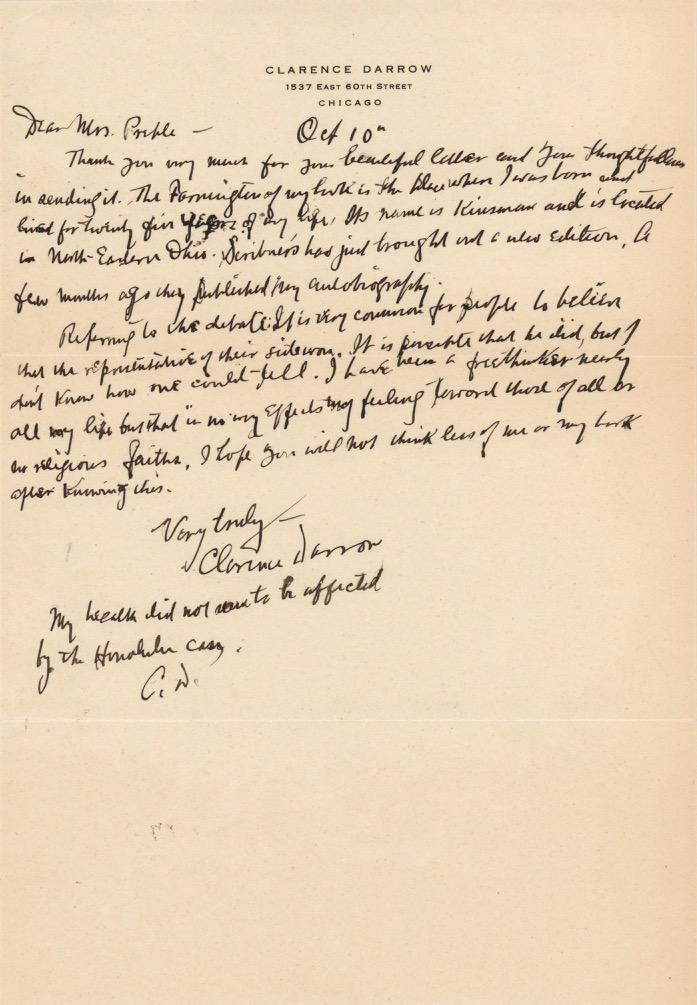 CLARENCE DARROW
1537 EAST 60TH STREET
CHICAGO
Dear Mrs. Preble —
Oct 10"
Thank you very much for your beautiful letter and your thoughtfulness
in sending it. The Farmington of my book is the place where I was born and
lived for twenty five years of my life, Its name is Kinsman and is located
in North-Eastern Ohio. Scribners has just brought out a new edition, A
few months ago they published my autobiography.
Referring to the debate: It is very common for people to believe
that the representative of their side won. It is possible that he did, but I
don't know how one could tell. I have been a freethinker nearly
all my life but that in no way effects my feeling toward those of all or
no religious faiths, I hope you will not think less of me or my book
after knowing this.
Very truly —
Clarence Darrow
My health did not seem to be affected
by the Honolulu case.
C. D.